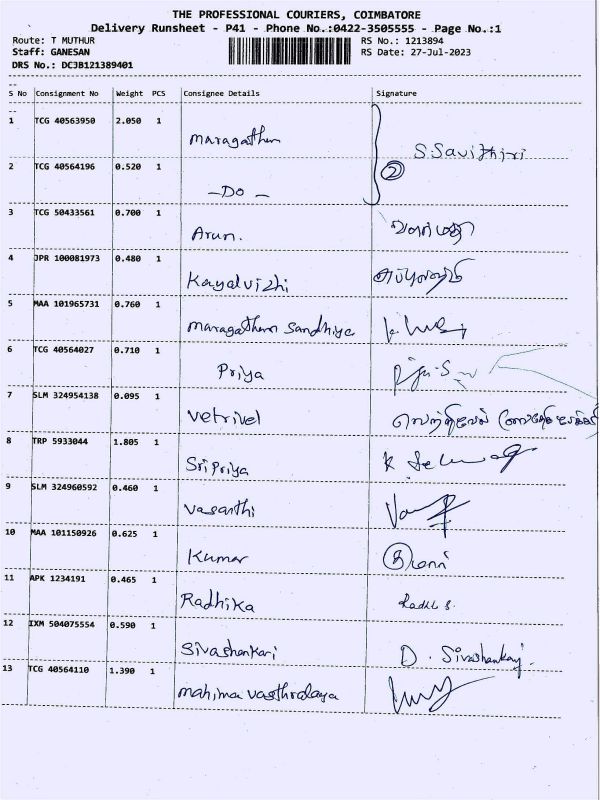 THE PROFESSIONAL COURIERS, COIMBATORE
Delivery Runsheet - P41 - Phone No.:0422-3505555 - Page No.:1
Route: T MUTHUR RS No.: 1213894
Staff: GANESAN RS Date: 27-Jul-2023
DRS No.: DCJB121389401
S No Consignment No Weight PCS Consignee Details Signature
1 TCG 40563950 2.050 1 Maragatham S.Savithiri
2 TCG 40564196 0.520 1 -Do- 2
3 TCG 50433561 0.700 1 Arun. வளர்மதி
4 JPR 100081973 0.480 1 Kayalvizhi
5 MAA 101965731 0.760 1 Maragatham Sandhiya
6 TCG 40564027 0.710 1 Priya
7 SLM 324954138 0.095 1 Vetrivel வெற்றிவேல்
8 TRP 5933044 1.805 1 Sri Priya
9 SLM 324960592 0.460 1 Vasanthi
10 MAA 101150926 0.625 1 Kumar
11 APK 1234191 0.465 1 Radhika
12 IXM 504075554 0.590 1 Sivashankari D. Sivashankari
13 TCG 40564110 1.390 1 Mahima Vasthralaya